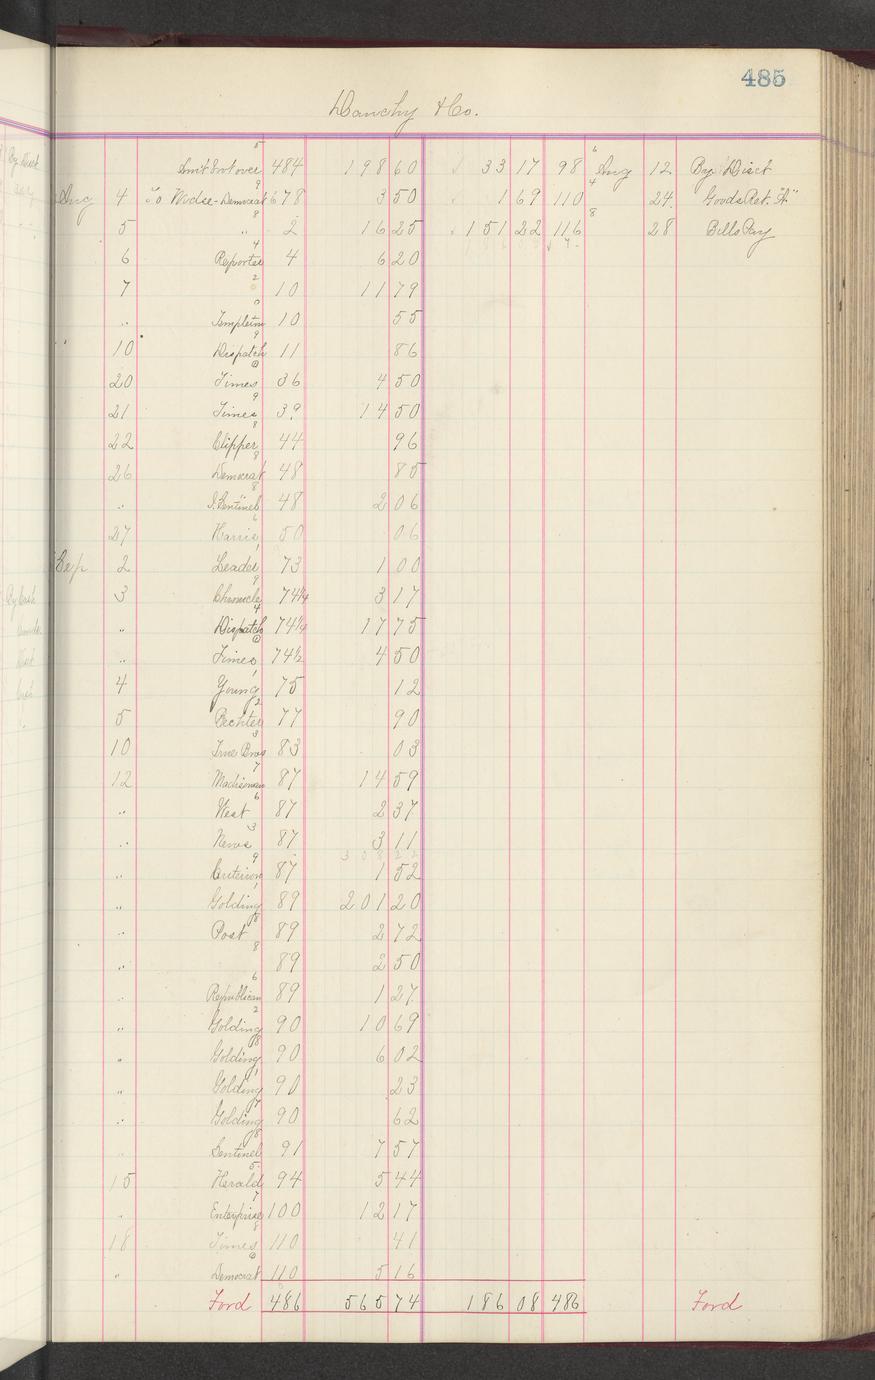 485
Dauchy & Co.
Am't Brot over 484 198 60 33 17 98 Aug 12 By Disct
Aug 4 To Mdse - Democrat 678 3 50 1 69 110 24 Goods Ret. "A"
5 " 2 16 25 151 22 116 28 Bills Pay
6 Reporter 4 6 20
7 10 11 79
" Templeton 10 55
10 Dispatch 11 86
20 Times 36 4 50
21 Times 39 14 50
22 Clipper 44 96
26 Democrat 48 85
" S. Sentinel 48 2 06
27 Harris 50 06
Sep 2 Leader 73 1 00
3 Chronicle 74¼ 3 17
" Dispatch 74¼ 17 75
" Times 74½ 4 50
4 Young 75 12
5 Pechter 77 90
10 True Bros 83 03
12 Madisonian 87 14 59
" West 87 2 37
" News 87 3 11
" Criterion 87 1 52
" Golding 89 201 20
" Post 89 2 72
" 89 2 50
" Republican 89 1 27
" Golding 90 10 69
" Golding 90 6 02
" Golding 90 23
" Golding 90 62
" Sentinel 91 7 57
15 Herald 94 5 44
" Enterprise 100 12 17
18 Times 110 41
" Democrat 110 5 16
Ford 486 565 74 186 08 486 Ford